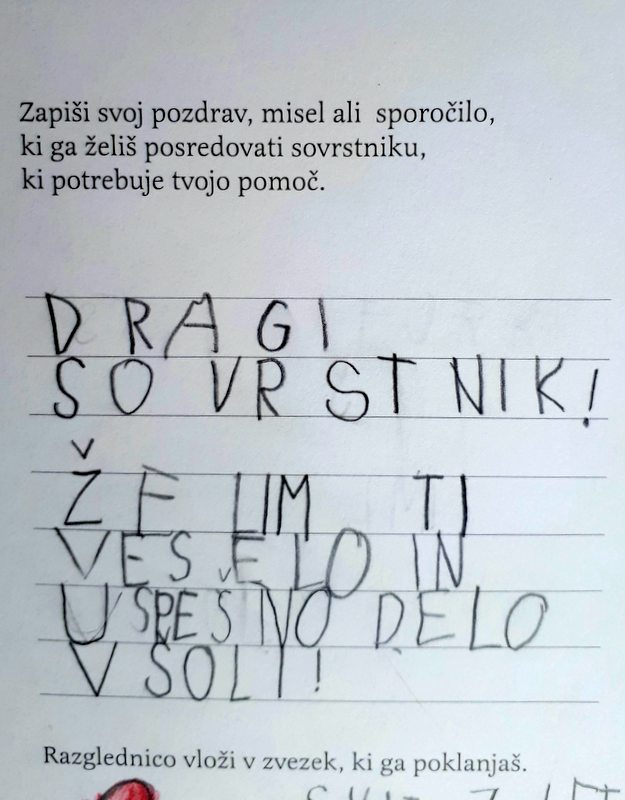 Zapiši svoj pozdrav, misel ali sporočilo,
ki ga želiš posredovati sovrstniku,
ki potrebuje tvojo pomoč.
DRAGI
SOVRSTNIK!
ŽELIM TI
VESELO IN
USPEŠNO DELO
V ŠOLI!
Razglednico vloži v zvezek, ki ga poklanjaš.